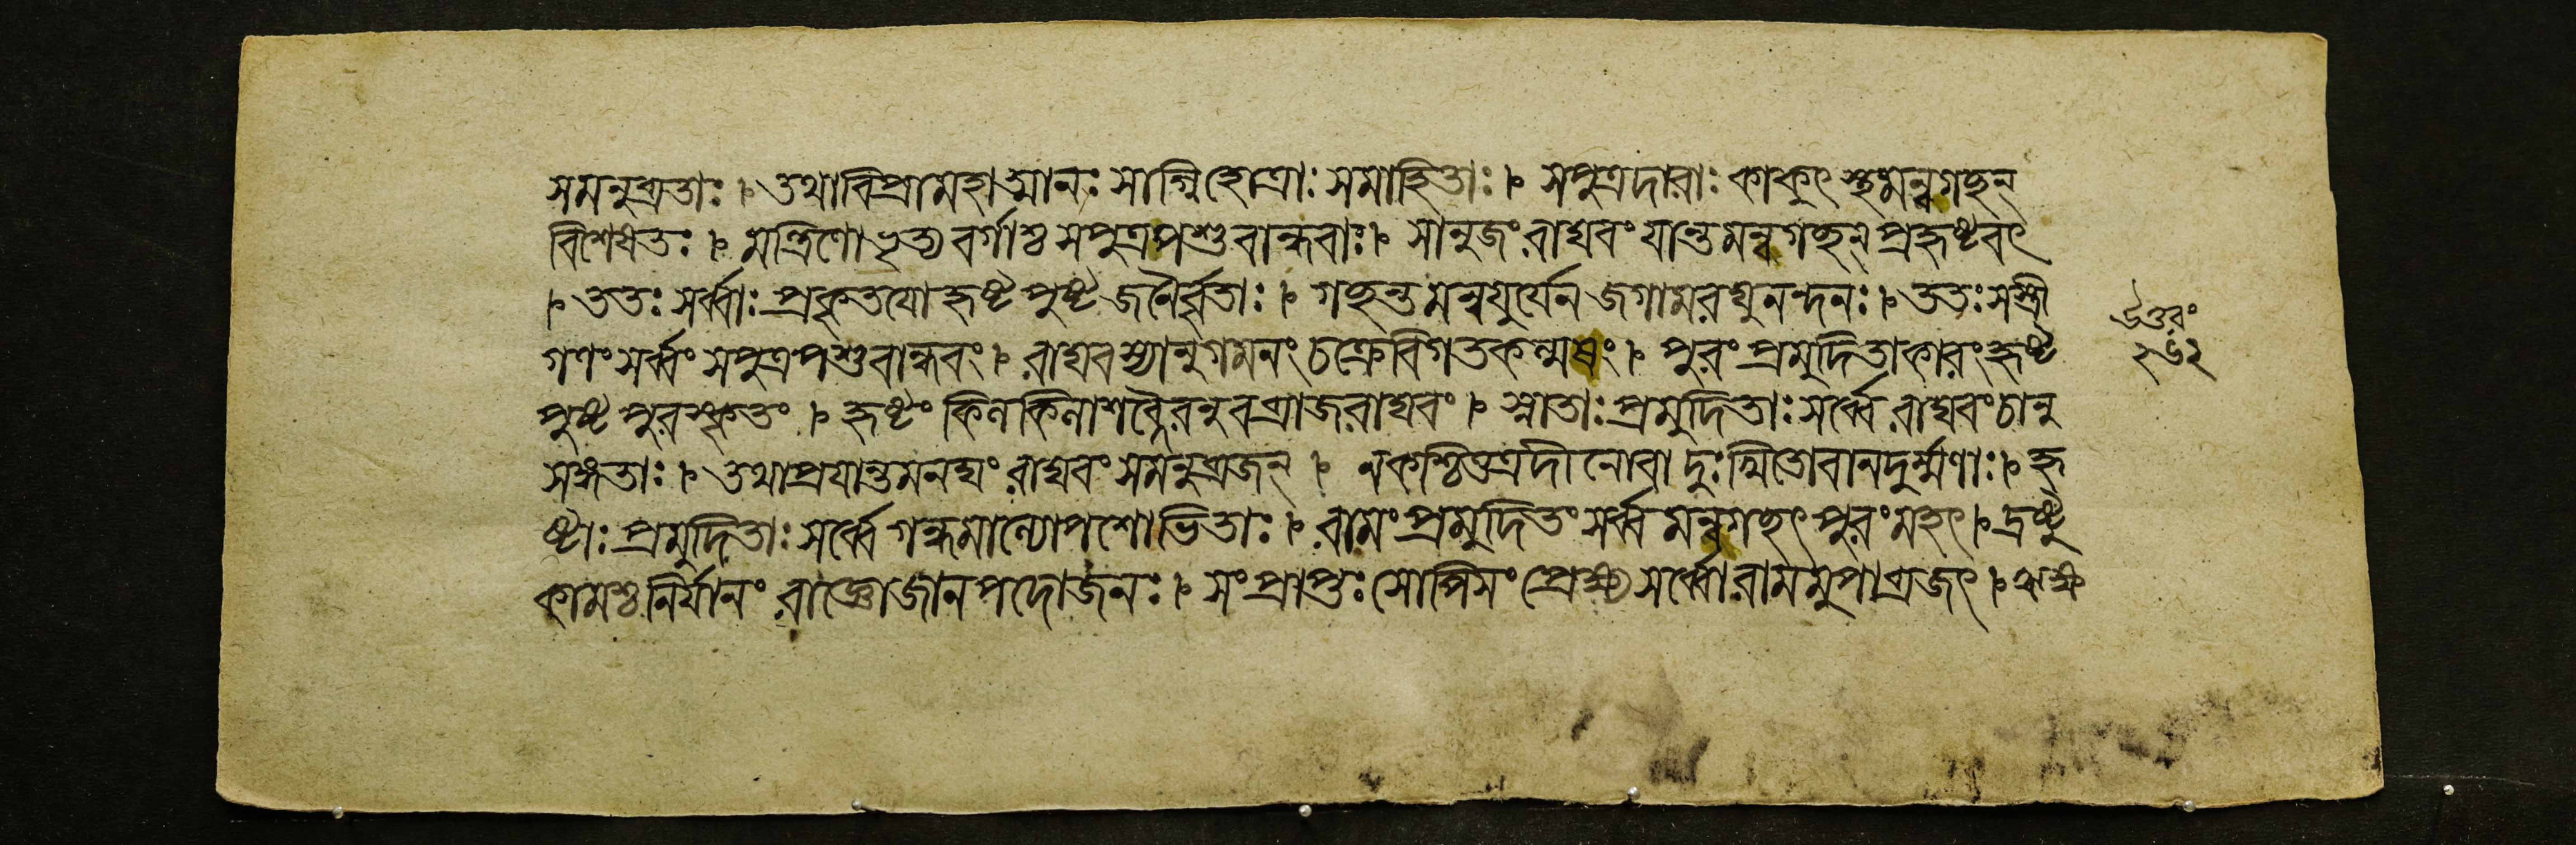 সমনুব্রতাঃ । তথাবিপ্রামহাত্মানঃ সাগ্নিহোত্রাঃ সমাহিতাঃ । সপুত্রদারাঃ কাকুৎস্থমন্বগছন্
বিশেষতঃ । মন্ত্রিণোভৃত্যবর্গাশ্চ সপুত্রপশুবান্ধবাঃ । সানুজং রাঘবং যান্তমন্বগছন্ প্রহৃষ্টবৎ
। ততঃ সর্ব্বাঃ প্রকৃতয়ো হৃষ্টপুষ্টজনৈর্বৃতাঃ । গছন্তমন্বযুর্যেন জগামরঘুনন্দনঃ । ততঃ সস্ত্রী
গণং সর্ব্বং সপুত্রপশুবান্ধবং । রাঘবস্যানুগমনং চক্রেবিগতকল্মষং । পুরং প্রমুদিতাকারং হৃষ্ট
পুষ্টপুরস্কৃতং । হৃষ্টং কিলকিলাশব্দৈরনুবব্রাজরাঘবং । স্নাতাঃ প্রমুদিতাঃ সর্ব্বে রাঘবং চানু
সঙ্গতাঃ । তথাপ্রযান্তমনঘং রাঘবং সমনুব্রজন্ । নকশ্চিত্তত্রদীনোবা দুঃখিতোবানদুর্ম্মণাঃ । হৃ
ষ্টাঃ প্রমুদিতাঃ সর্ব্বে গন্ধমাল্যোপশোভিতাঃ । রামং প্রমুদিতং সর্ব্বমন্বগছৎ পুরং মহৎ । দ্রষ্টু
কামশ্চনির্যানং রাজ্ঞোজানপদোজনঃ । সংপ্রাপ্তঃ সোপিসংপ্রেক্ষ্য সর্ব্বোরামমুপাব্রজৎ । ঋক্ষ
উত্তরং
২৬২